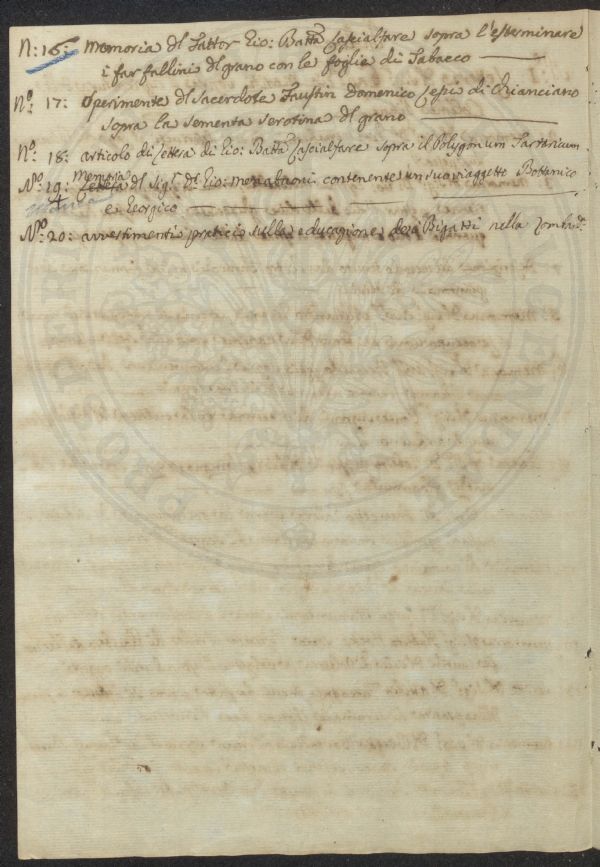 N: 16: Memoria dl Fattor Gio: Batta Lascialfare sopra l'esterminare
i farfallini dl grano con le foglie di Tabacco
No. 17: Sperimento dl Sacerdote Faustin Domenico Cesii di Chianciano
sopra la sementa serotina dl grano
No. 18: articolo di Lettera di Gio: Batta Lascialfare sopra il Polygonum Tartaricum
Memoria
No. 19: Lettera dl Sigr. Dr. Gio: contenente un suo viaggetto Bottanico
e Georgico
No. 20: avvertimenti pratici sulla educazione dei Bigatti nella Lombard:
PROSPER